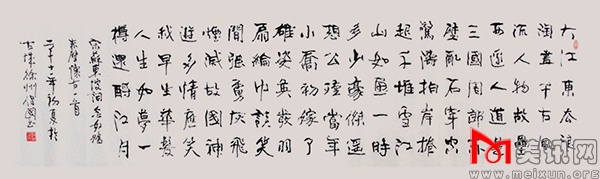 大江東去浪
淘盡千古風
流人物故壘
西邊人道是
三國周郎赤
壁亂石穿空
驚濤拍岸捲
起千堆雪江
山如畫一時
多少豪傑遥
想公瑾當年
小喬初嫁了
雄姿英發羽
扇綸巾談笑
間強虜灰飛
煙滅故國神
遊多情應笑
我早生華髮
人生如夢一
樽還酹江月
宋蘇東坡詞念奴嬌
赤壁懷古一首
年初夏於
古城徐州
美讯网
www.meixun.org